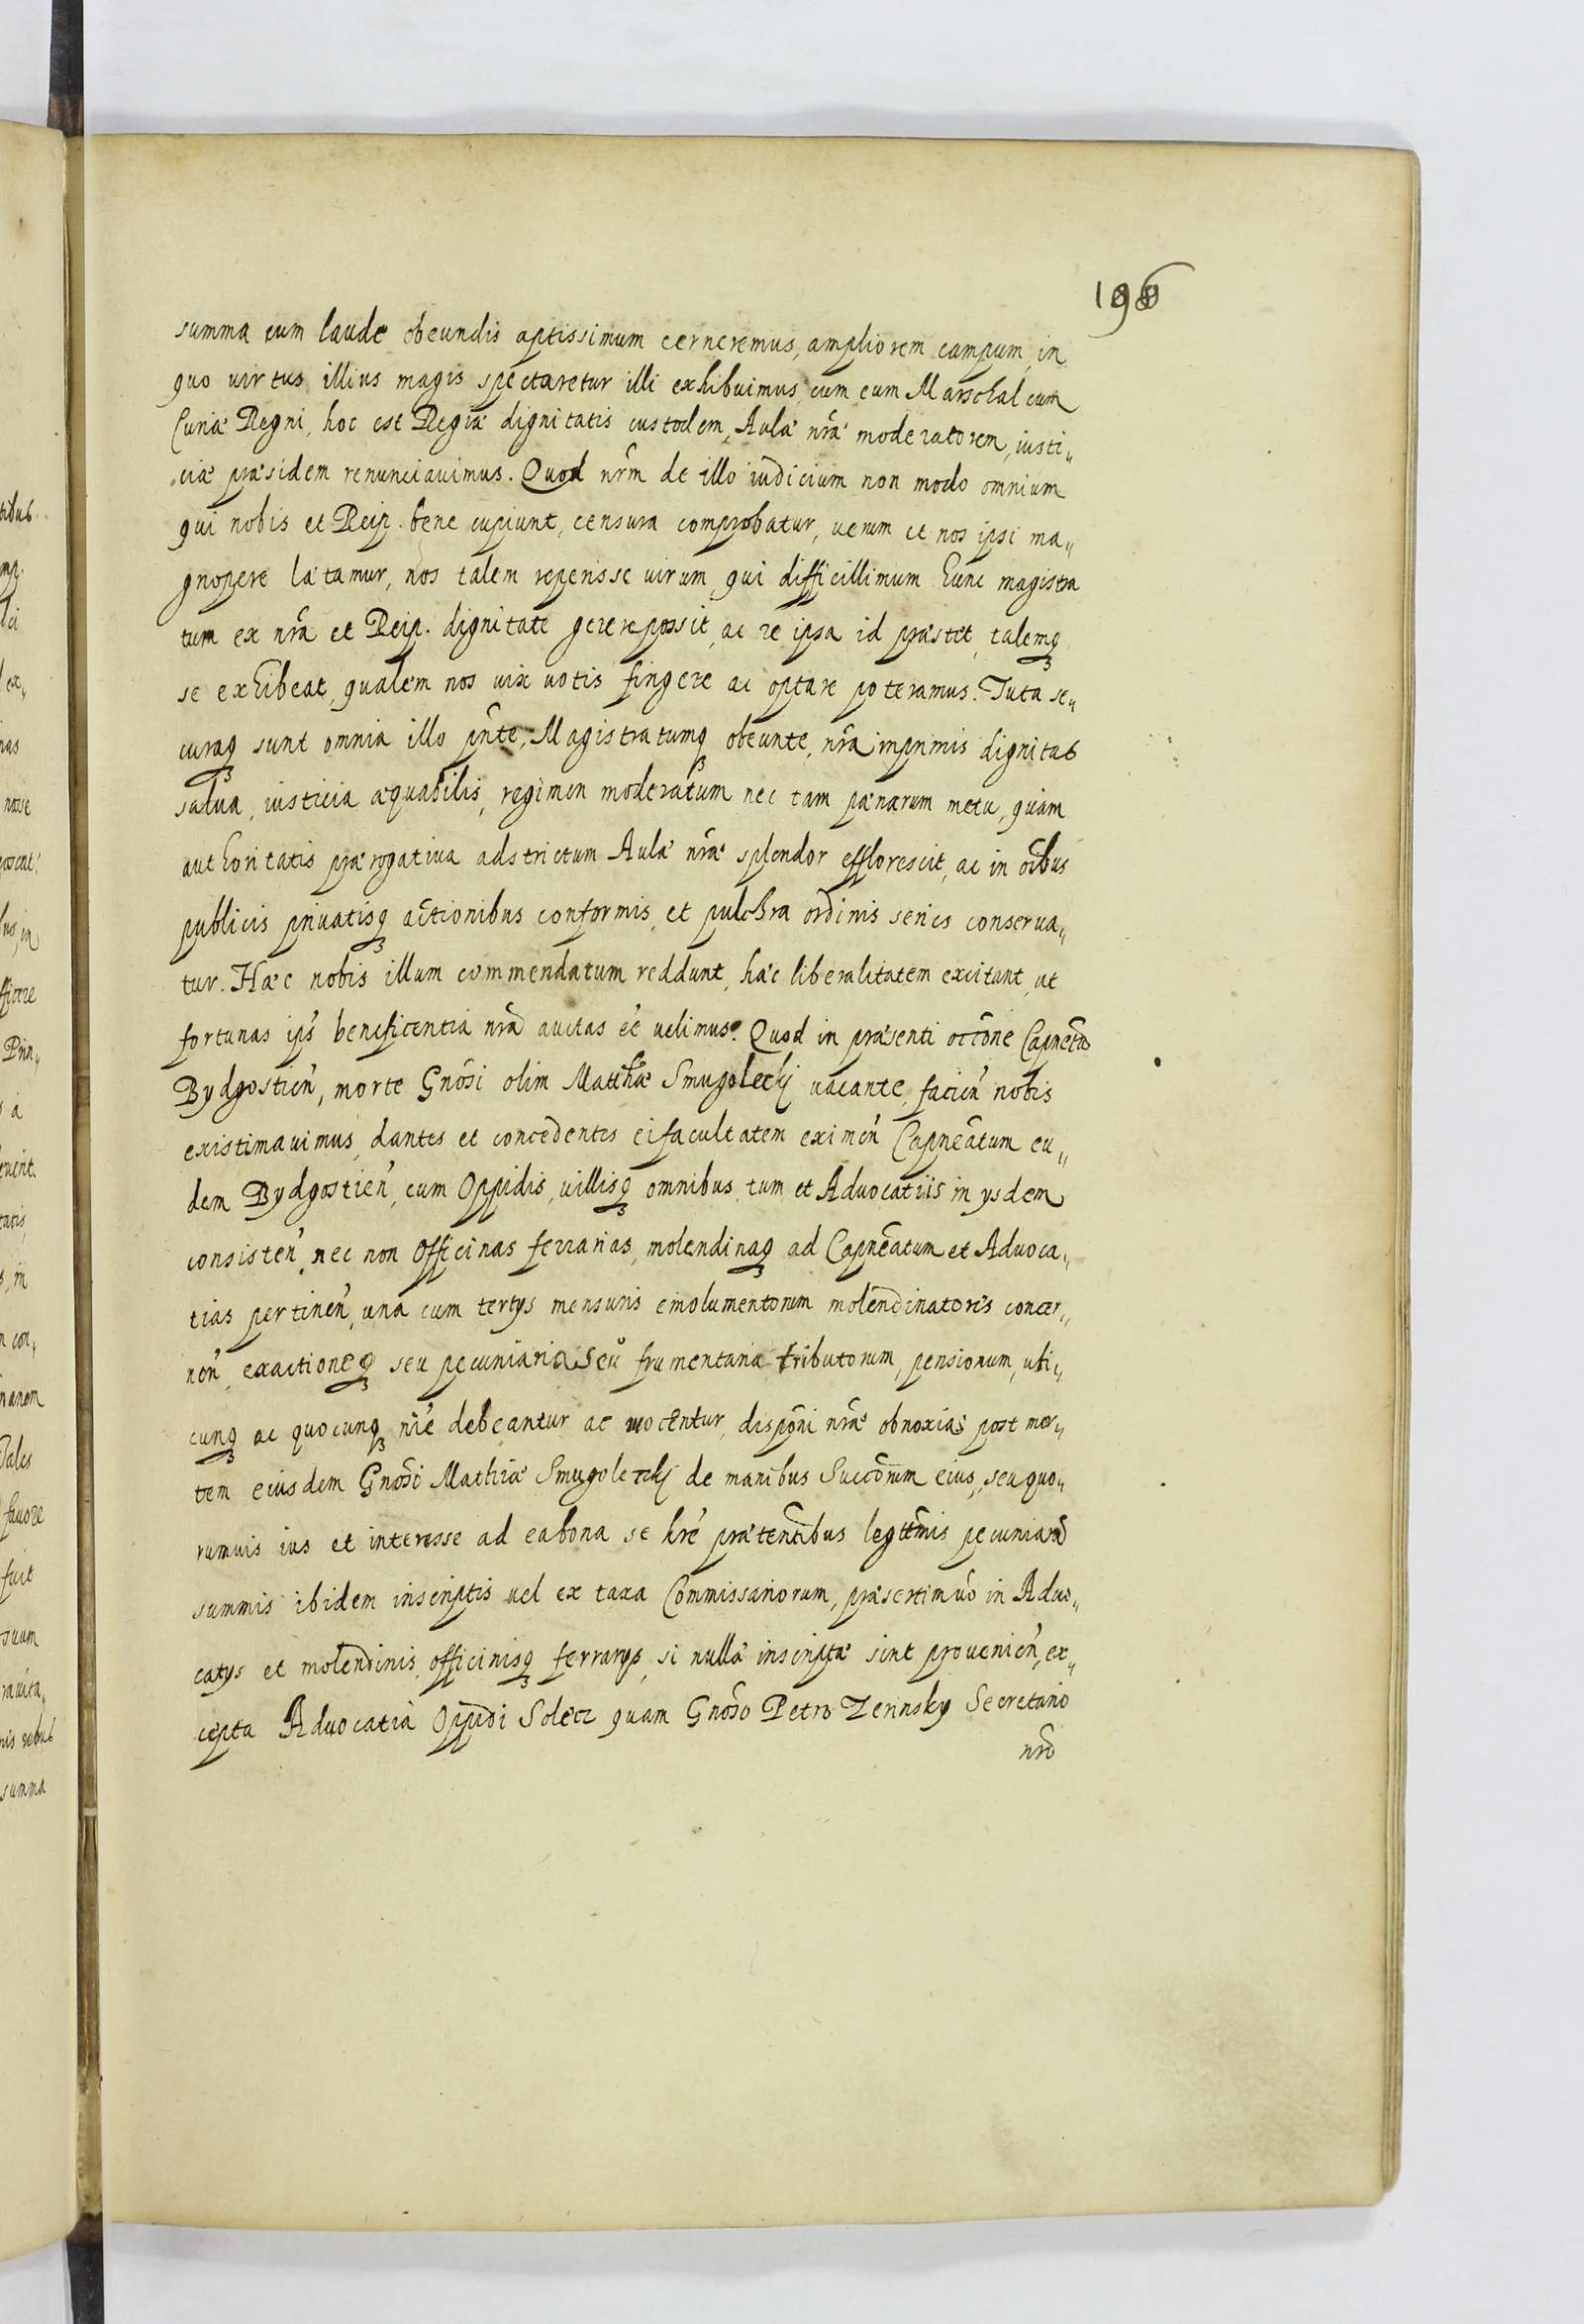 summa cum laude obeundis aptissimum cerneremus, ampliorem campum, in
quo uirtus illius magis spectaretur illi exhibuimus, cum eum Marschalcum
Curiæ Regni, hoc est Regiæ dignitatis custodem, Aulæ nr̃æ moderatorem, iusti„
ciæ præsidem renunciauimus. Quod nr̃m de illo iudicium non modo omnium
qui nobis et Reip. bene cupiunt, censura comprobatur, uerum et nos ipsi ma„
gnopere lætamur, nos talem reperisse uirum, qui difficillimum hunc magistra
tum ex nr̃a et Reip. dignitate gerere possit, ac re ipsa id præstet, talemq3
se exhibeat, qualem nos uix uotis fingere ac optare poteramus. Tuta se„
curaq3 sunt omnia illo pñte, Magistratumq3 obeunte, nr̃a inprimis dignitas
salua, iusticia æquabilis, regimen moderatum nec tam pænarum metu, quàm
authoritatis prærogatiua adstrictum Aulæ nr̃æ splendor efflorescit, ac in oĩbus
publicis priuatisq3 actionibus conformis, et pulchra ordinis series conserua„
tur. Hæc nobis illum commendatum reddunt, hæc liberalitatem excitant, ut
fortunas ip̃s beneficentia nr̃a auctas eẽ uelimus. Quod in præsenti occõne Capnẽtu
Bydgostien̄, morte Gnõsi olim Matthiæ Smugoleckj uacante, facien̄ nobis
existimauimus, dantes et concedentes ei facultatem eximen̄ Capneãtum eu„
dem Bydgostien̄, cum Oppidis, uillisq3 omnibus, tum et Aduocatiis in ysdem
consisten̄, nec non Officinas ferrarias, molendinaq3 ad Capneãtum et Aduoca„
tias pertinen̄, una cum tertys mensuris emolumentorum molendinatores concer„
nen̄, exactioneq3 seu pecuniaria seu frumentaria tributorum, pensionum, ubi„
cunq3 ac quocunq3 nĩe debeantur ac uocentur, dispõni nr̃æ obnoxias post mor„
tem eiusdem Gnõsi Mathiæ Smugolecky de manibus Succõrum eius, seu quo„
rumuis ius et interesse ad ea bona se hr̃e prætentibus legttm̃is pecuniarũ
summis ibidem inscriptis uel ex taxa Commissariorum, præsertim uõ in Aduo„
catys et molendinis, officinisq3 ferrarys, si nullæ inscriptæ sint prouenien̄, ex„
cepta Aduocatia Oppidi Solecz quam Gnõso Petro Zerinsky Secretario
nr̃o
198